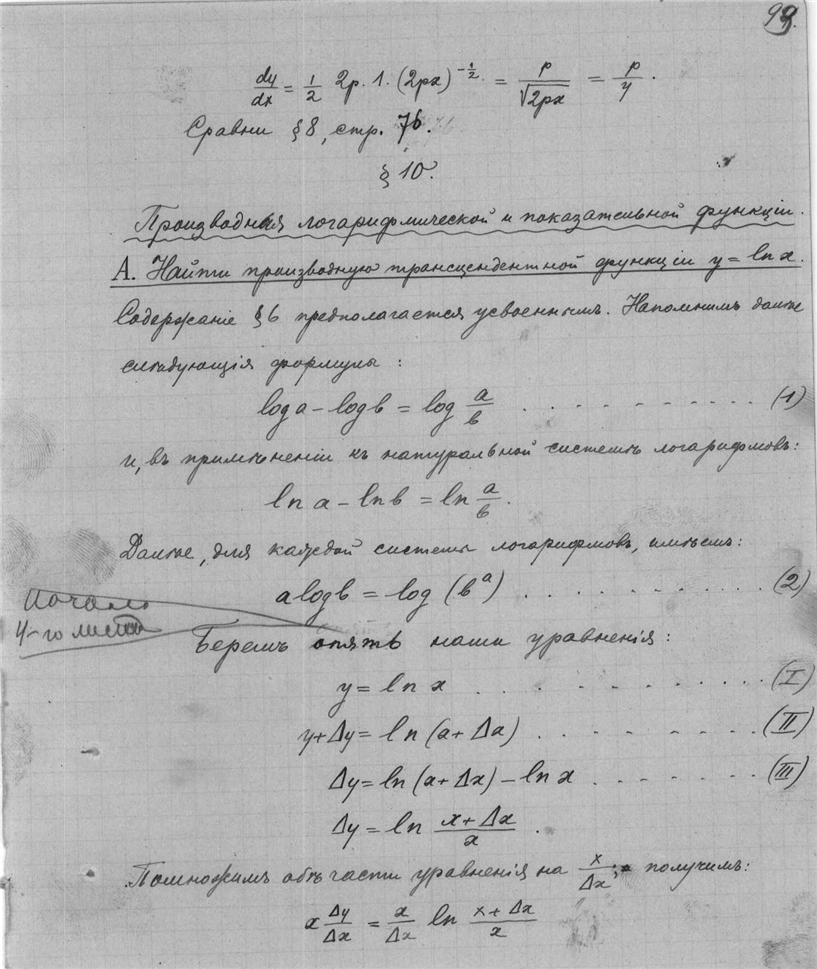 99.
dy/dx = 1/2 2p. 1. (2px)^{-1/2} = p/√2px = p/y.
Сравни § 8, стр. 76.
§ 10.
Производная логарифмической и показательной функціи.
А. Найти производную трансцендентной функціи y = ln x.
Содержаніе § 6 предполагается усвоеннымъ. Напомнимъ далѣе
слѣдующія формулы :
log a – log b = log a/b . . . . . . . . . . (1)
и, въ примѣненіи къ натуральной системѣ логарифмовъ:
ln a – ln b = ln a/b.
Далѣе, для каждой системы логарифмовъ, имѣемъ:
a log b = log (b^a) . . . . . . . . . . (2)
Начало
4-го листа
Беремъ опять наши уравненія :
y = ln x . . . . . . . . . . (I)
y + Δy = ln (x + Δx) . . . . . . . . (II)
Δy = ln (x + Δx) – ln x . . . . . . (III)
Δy = ln x + Δx/x .
Помножимъ обѣ части уравненія на x/Δx; получимъ:
x Δy/Δx = x/Δx ln x + Δx/x